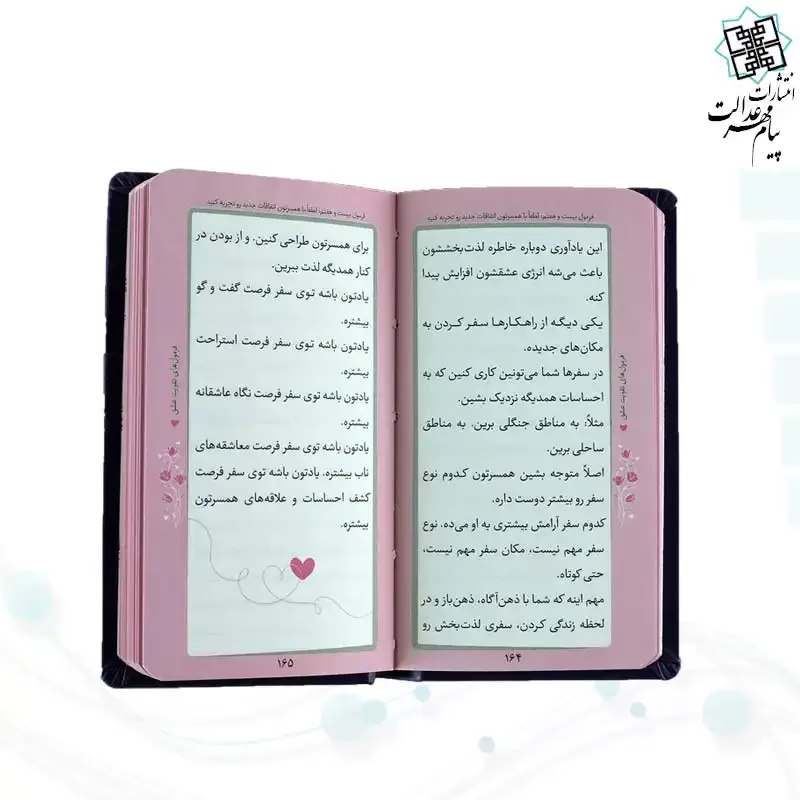 انتشارات
پیام مهر عدالت
فرمول بیست و هفتم: لطفاً با همسرتون اتفاقات جدید رو تجربه کنید
این یادآوری دوباره خاطره لذت‌بخششون
باعث می‌شه انرژی عشقشون افزایش پیدا
کنه.
یکی دیگه از راهکارها سفر کردن به
مکان‌های جدیده.
در سفرها شما می‌تونین کاری کنین که به
احساسات همدیگه نزدیک بشین.
مثلاً: به مناطق جنگلی برین. به مناطق
ساحلی برین.
اصلاً متوجه بشین همسرتون کدوم نوع
سفر رو بیشتر دوست داره.
کدوم سفر آرامش بیشتری به او می‌ده. نوع
سفر مهم نیست، مکان سفر مهم نیست،
حتی کوتاه.
مهم اینه که شما با ذهن‌آگاه، ذهن‌باز و در
لحظه زندگی کردن، سفری لذت‌بخش رو
فرمول‌های تقویت عشق
۱۶۴
فرمول بیست و هفتم: لطفاً با همسرتون اتفاقات جدید رو تجربه کنید
برای همسرتون طراحی کنین. و از بودن در
کنار همدیگه لذت ببرین.
یادتون باشه توی سفر فرصت گفت و گو
بیشتره.
یادتون باشه توی سفر فرصت استراحت
بیشتره.
یادتون باشه توی سفر فرصت نگاه عاشقانه
بیشتره.
یادتون باشه توی سفر فرصت معاشقه‌های
ناب بیشتره. یادتون باشه توی سفر فرصت
کشف احساسات و علاقه‌های همسرتون
بیشتره.
فرمول‌های تقویت عشق
۱۶۵